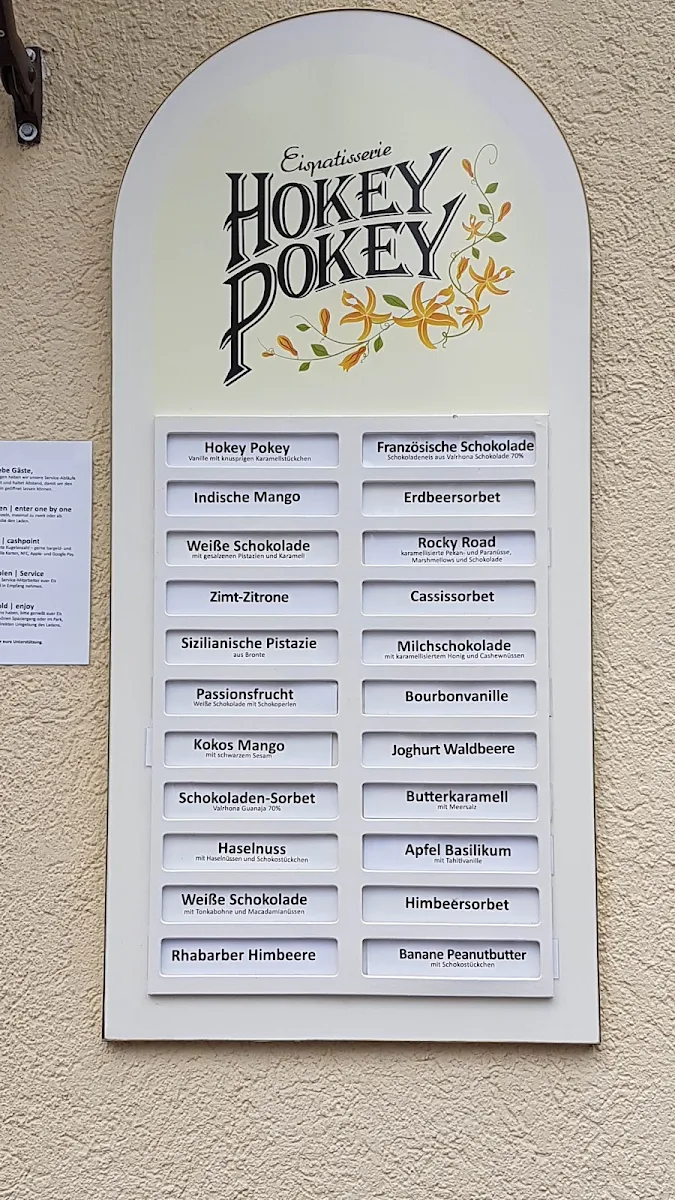 Eispatisserie
HOKEY
POKEY
Hokey Pokey
Vanille mit knusprigen Karamellstückchen
Indische Mango
Weiße Schokolade
mit gesalzenen Pistazien und Karamell
Zimt-Zitrone
Sizilianische Pistazie
aus Bronte
Passionsfrucht
Weiße Schokolade mit Schokoperlen
Kokos Mango
mit schwarzem Sesam
Schokoladen-Sorbet
Valrhona Guanaja 70%
Haselnuss
mit Haselnüssen und Schokostückchen
Weiße Schokolade
mit Tonkabohne und Macadamianüssen
Rhabarber Himbeere
Französische Schokolade
Schokoladeneis aus Valrhona Schokolade 70%
Erdbeersorbet
Rocky Road
karamellisierte Pekan- und Paranüsse,
Marshmellows und Schokolade
Cassissorbet
Milchschokolade
mit karamellisiertem Honig und Cashewnüssen
Bourbonvanille
Joghurt Waldbeere
Butterkaramell
mit Meersalz
Apfel Basilikum
mit Tahitivanille
Himbeersorbet
Banane Peanutbutter
mit Schokostückchen
Gäste,
| enter one by one
| cashpoint
| Service
| enjoy